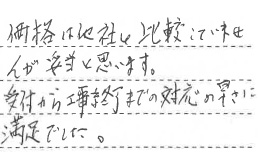 価格は他社と比較していませ
んが妥当と思います。
受付から工事終了までの対応の早さに
満足でした。